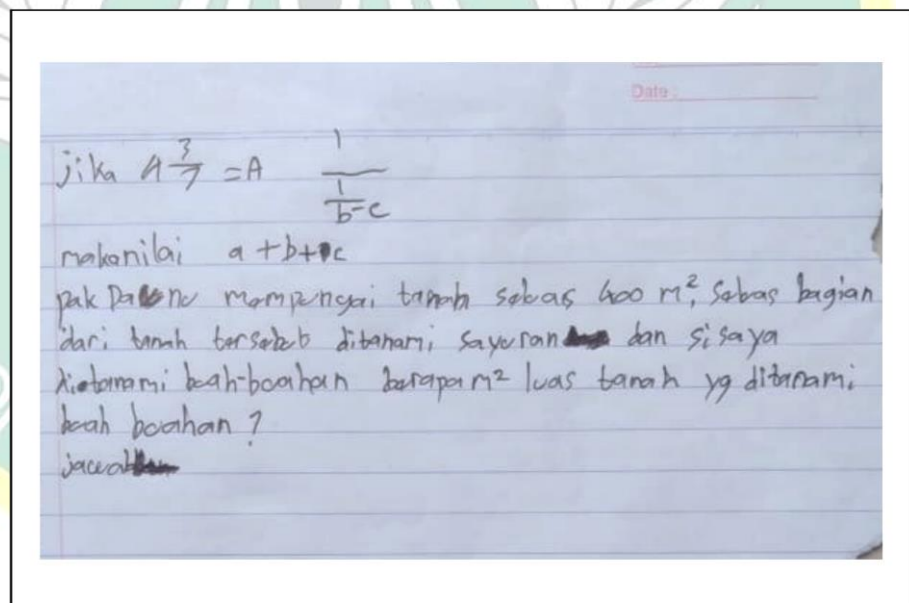 Date :
jika 4 3/7 = A 1/(1/b-c)
makanilai a + b + c
pak mempunyai tanah sebas 400 m², Sebas bagian
dari tanah tersebut ditanami sayuran dan sisaya
ditanami buah-buahan berapa m² luas tanah yg ditanami
buah buahan ?
jawab